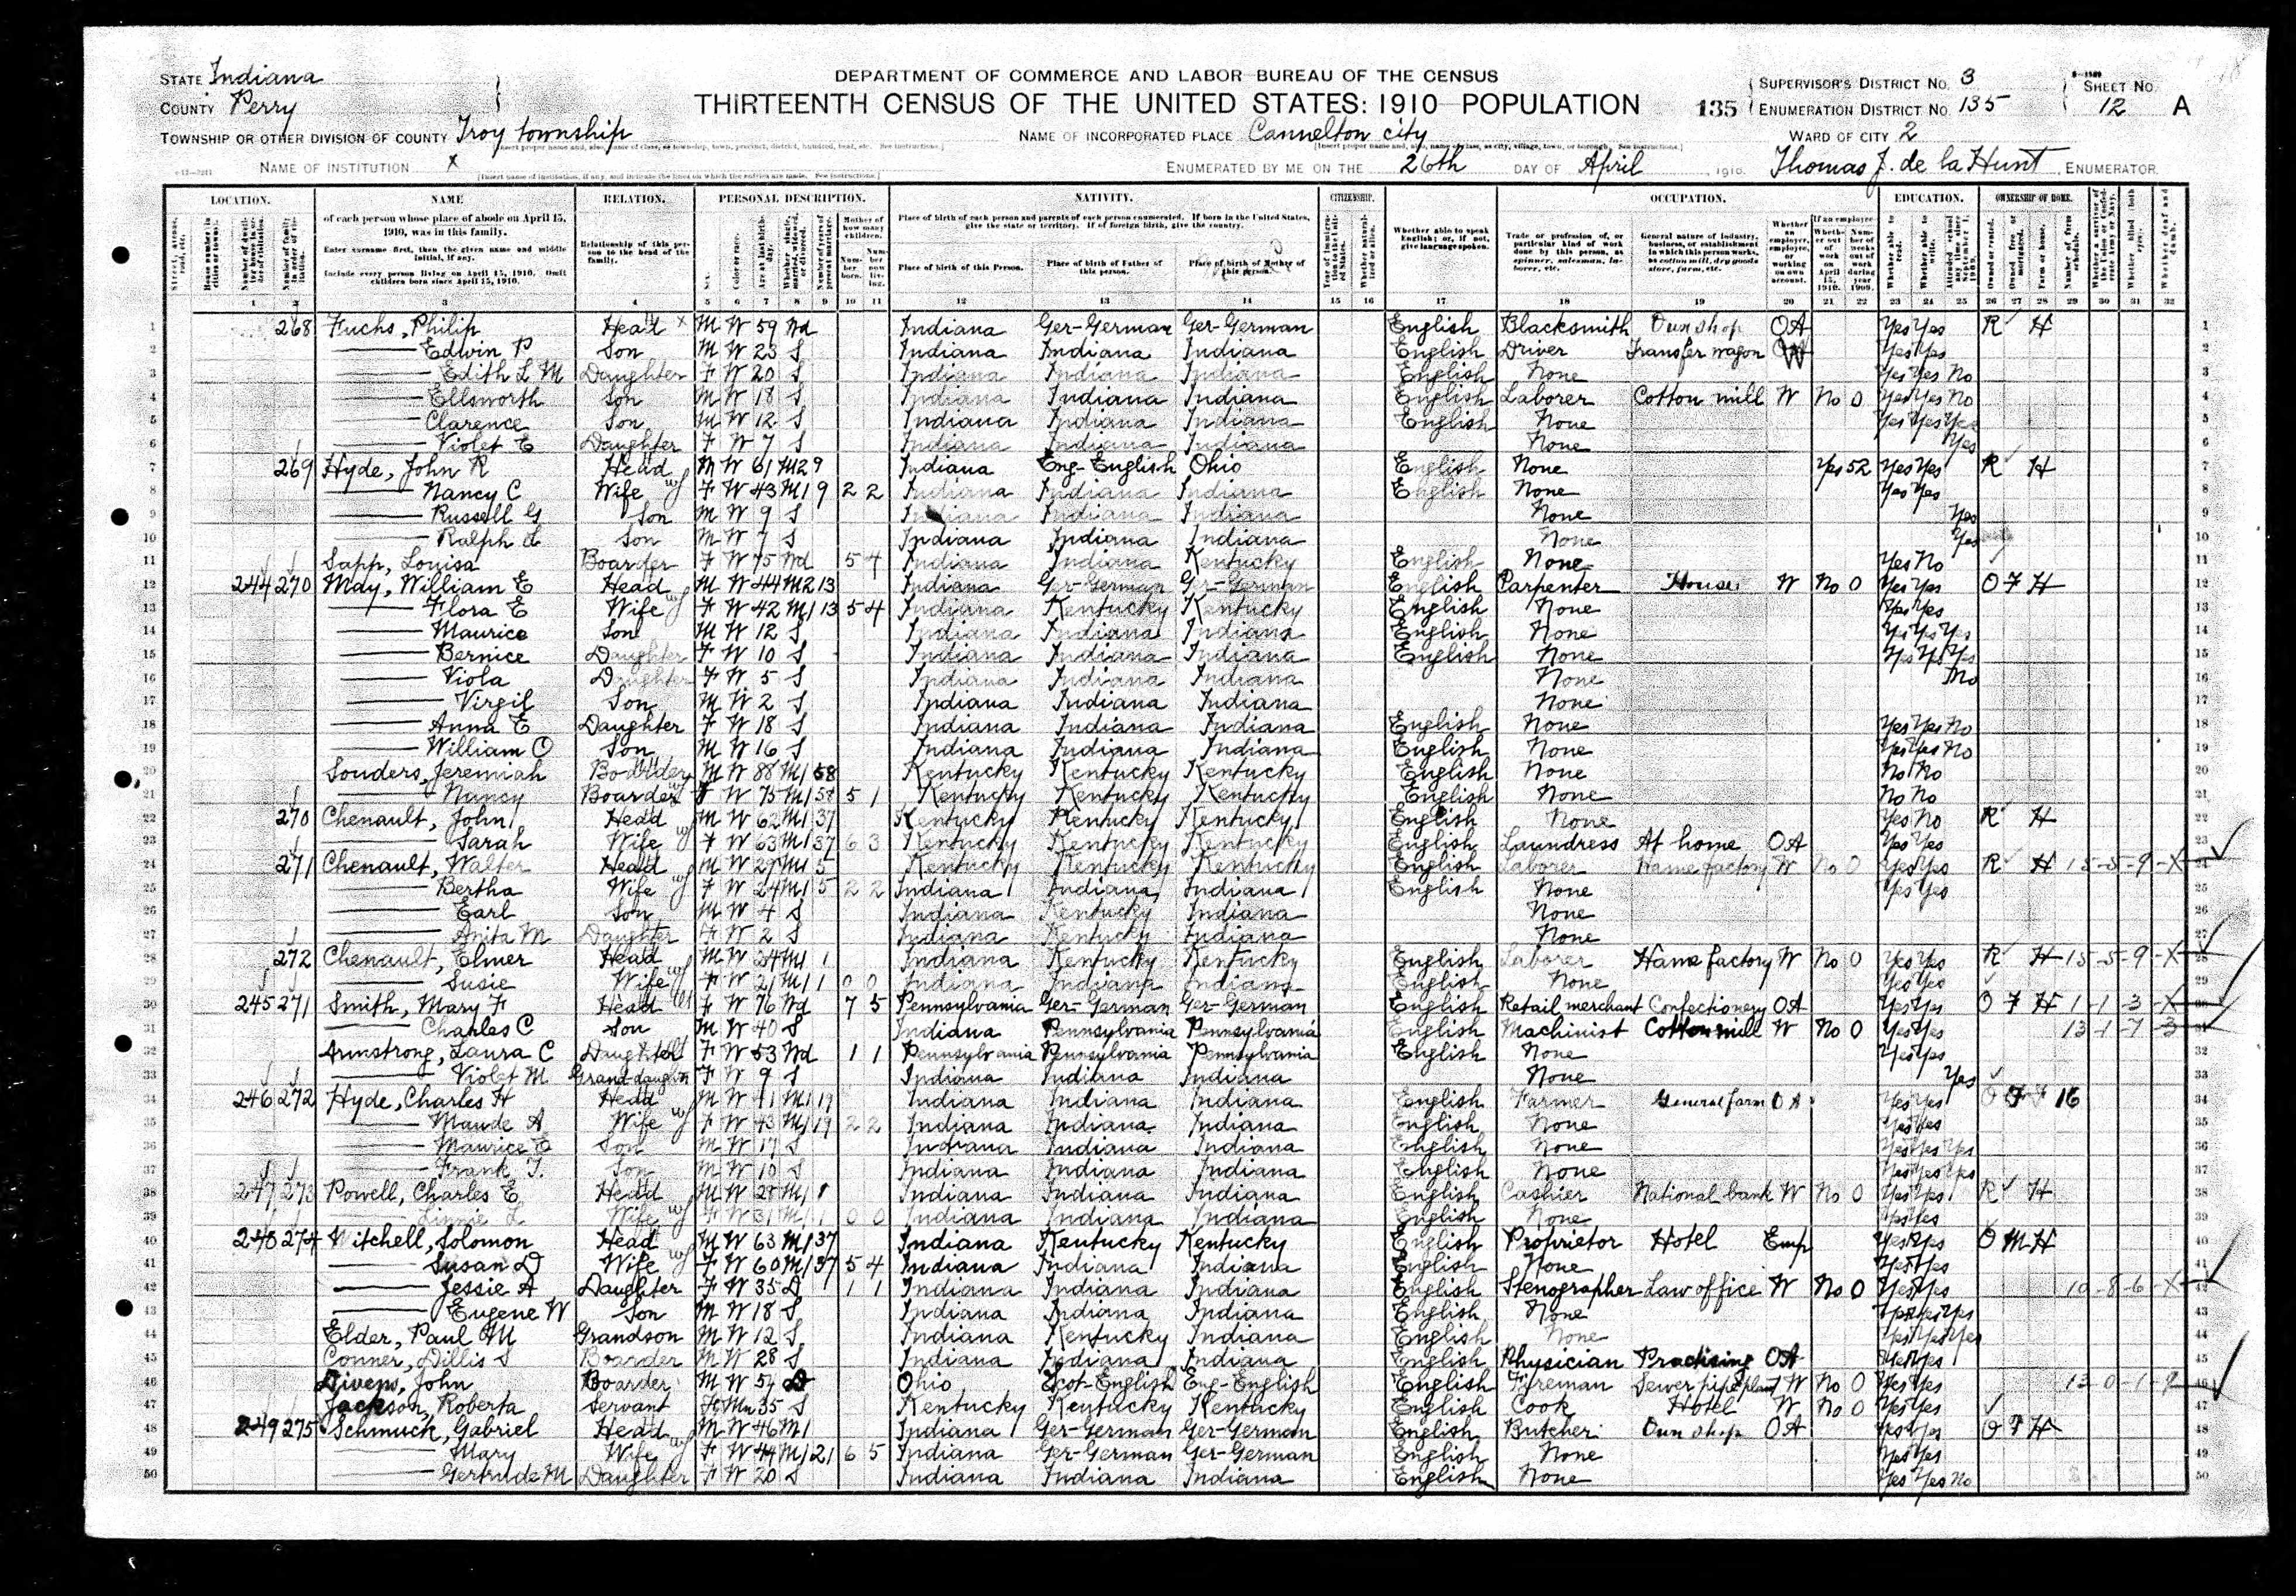 STATE Indiana
COUNTY Perry
TOWNSHIP OR OTHER DIVISION OF COUNTY Troy township
NAME OF INSTITUTION X
DEPARTMENT OF COMMERCE AND LABOR BUREAU OF THE CENSUS
THIRTEENTH CENSUS OF THE UNITED STATES: 1910 POPULATION
NAME OF INCORPORATED PLACE Cannelton city
ENUMERATED BY ME ON THE 26th DAY OF April, 1910. Thomas J. de la Hunt, ENUMERATOR
135
SUPERVISOR'S DISTRICT NO. 3
ENUMERATION DISTRICT NO. 135
SHEET NO. 12 A
WARD OF CITY 2
LOCATION. NAME RELATION. PERSONAL DESCRIPTION. NATIVITY. CITIZENSHIP. OCCUPATION. EDUCATION. OWNERSHIP OF HOME.
of each person whose place of abode on April 15, 1910, was in this family.
Enter surname first, then the given name and middle initial, if any.
Include every person living on April 15, 1910. Omit children born since April 15, 1910.
Relationship of this person to the head of the family.
Place of birth of each person and parents of each person enumerated. If born in the United States, give the state or territory. If of foreign birth, give the country.
Place of birth of this Person. Place of birth of Father of this person. Place of birth of Mother of this person.
Whether able to speak English; or, if not, give language spoken.
1 2 3 4 5 6 7 8 9 10 11 12 13 14 15 16 17 18 19 20 21 22 23 24 25 26 27 28 29 30 31 32
1 268 Fuchs, Philip Head M W 59 Wd Indiana Ger-German Ger-German English Blacksmith Own shop OA Yes Yes R H 1
2 Edwin P Son M W 23 S Indiana Indiana Indiana English Driver Transfer wagon W Yes Yes 2
3 Edith L M Daughter F W 20 S Indiana Indiana Indiana English None Yes Yes No 3
4 Ellsworth Son M W 18 S Indiana Indiana Indiana English Laborer Cotton mill W No 0 Yes Yes No 4
5 Clarence Son M W 12 S Indiana Indiana Indiana English None Yes Yes Yes 5
6 Violet E Daughter F W 7 S Indiana Indiana Indiana None Yes 6
7 269 Hyde, John R Head M W 61 M2 9 Indiana Eng-English Ohio English None Yes 52 Yes Yes R H 7
8 Nancy C Wife F W 43 M1 9 2 2 Indiana Indiana Indiana English None Yes Yes 8
9 Russell G Son M W 9 S Indiana Indiana Indiana None Yes 9
10 Ralph Son M W 7 S Indiana Indiana Indiana None Yes 10
11 Sapp, Louisa Boarder F W 75 Wd 5 4 Indiana Indiana Kentucky English None Yes No 11
12 244 270 May, William E Head M W 44 M2 13 Indiana Ger-German Ger-German English Carpenter House W No 0 Yes Yes O F H 12
13 Flora E Wife F W 42 M1 13 5 4 Indiana Kentucky Kentucky English None Yes Yes 13
14 Maurice Son M W 12 S Indiana Indiana Indiana English None Yes Yes Yes 14
15 Bernice Daughter F W 10 S Indiana Indiana Indiana English None Yes Yes Yes 15
16 Viola Daughter F W 5 S Indiana Indiana Indiana None No 16
17 Virgil Son M W 2 S Indiana Indiana Indiana None 17
18 Anna E Daughter F W 18 S Indiana Indiana Indiana English None Yes Yes No 18
19 William O Son M W 16 S Indiana Indiana Indiana English None Yes Yes No 19
20 Souders, Jeremiah Boarder M W 88 M1 58 Kentucky Kentucky Kentucky English None No No 20
21 Nancy Boarder F W 75 M1 58 5 1 Kentucky Kentucky Kentucky English None No No 21
22 270 Chenault, John Head M W 62 M1 37 Kentucky Kentucky Kentucky English None Yes No R H 22
23 Sarah Wife F W 63 M1 37 6 3 Kentucky Kentucky Kentucky English Laundress At home OA Yes Yes 23
24 271 Chenault, Walter Head M W 27 M1 5 Kentucky Kentucky Kentucky English Laborer Hame factory W No 0 Yes Yes R H 15-5-9-X 24
25 Bertha Wife F W 24 M1 5 2 2 Indiana Indiana Indiana English None Yes Yes 25
26 Earl Son M W 4 S Indiana Kentucky Indiana None 26
27 Anita M Daughter F W 2 S Indiana Kentucky Indiana None 27
28 272 Chenault, Elmer Head M W 24 M1 1 Indiana Kentucky Kentucky English Laborer Hame factory W No 0 Yes Yes R H 15-5-9-X 28
29 Susie Wife F W 21 M1 1 0 0 Indiana Indiana Indiana English None Yes Yes 29
30 245 271 Smith, Mary F Head F W 76 Wd 7 5 Pennsylvania Ger-German Ger-German English Retail merchant Confectionery OA Yes Yes O F H 1-1-3-X 30
31 Charles C Son M W 40 S Indiana Pennsylvania Pennsylvania English Machinist Cotton mill W No 0 Yes Yes 13-1-7-3 31
32 Armstrong, Laura C Daughter F W 53 Wd 1 1 Pennsylvania Pennsylvania Pennsylvania English None Yes Yes 32
33 Violet M Grand-daughter F W 9 S Indiana Indiana Indiana None Yes 33
34 246 272 Hyde, Charles H Head M W 41 M1 19 Indiana Indiana Indiana English Farmer General farm OA Yes Yes O F F 16 34
35 Maude A Wife F W 43 M1 19 2 2 Indiana Indiana Indiana English None Yes Yes 35
36 Maurice E Son M W 17 S Indiana Indiana Indiana English None Yes Yes Yes 36
37 Frank T. Son M W 10 S Indiana Indiana Indiana English None Yes Yes Yes 37
38 247 273 Powell, Charles E Head M W 28 M1 1 Indiana Indiana Indiana English Cashier National bank W No 0 Yes Yes R H 38
39 Linnie L Wife F W 31 M1 1 0 0 Indiana Indiana Indiana English None Yes Yes 39
40 248 274 Mitchell, Solomon Head M W 63 M1 37 Indiana Kentucky Kentucky English Proprietor Hotel Emp Yes Yes O M H 40
41 Susan D Wife F W 60 M1 37 5 4 Indiana Indiana Indiana English None Yes Yes 41
42 Jessie A Daughter F W 35 D 1 1 Indiana Indiana Indiana English Stenographer Law office W No 0 Yes Yes 10-8-6-X 42
43 Eugene W Son M W 18 S Indiana Indiana Indiana English None Yes Yes Yes 43
44 Elder, Paul M Grandson M W 12 S Indiana Kentucky Indiana English None Yes Yes Yes 44
45 Conner, Dillis S Boarder M W 28 S Indiana Indiana Indiana English Physician Practising OA Yes Yes 45
46 Divens, John Boarder M W D Ohio Scot-English Eng-English English Fireman Sewer pipe plant W No 0 Yes Yes 13-0-1-9 46
47 Jackson, Roberta Servant F Mu 35 S Kentucky Kentucky Kentucky English Cook Hotel W No 0 Yes Yes 47
48 249 275 Schmuck, Gabriel Head M W 46 M1 Indiana Ger-German Ger-German English Butcher Own shop OA Yes Yes O F H 48
49 Mary Wife F W 44 M1 21 6 5 Indiana Ger-German Ger-German English None Yes Yes 49
50 Gertrude M Daughter F W 20 S Indiana Indiana Indiana English None Yes Yes No 50